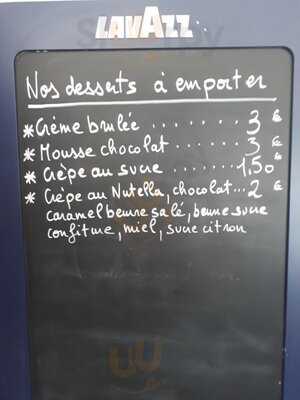 LAVAZZ
Nos desserts à emporter
* Crème brulée ....... 3 €
* Mousse chocolat ...... 3 €
* Crèpe au sucre ....... 1,50 €
* Crèpe au Nutella, chocolat... 2 €
caramel beurre salé, beurre sucre
confiture, miel, sucre citron